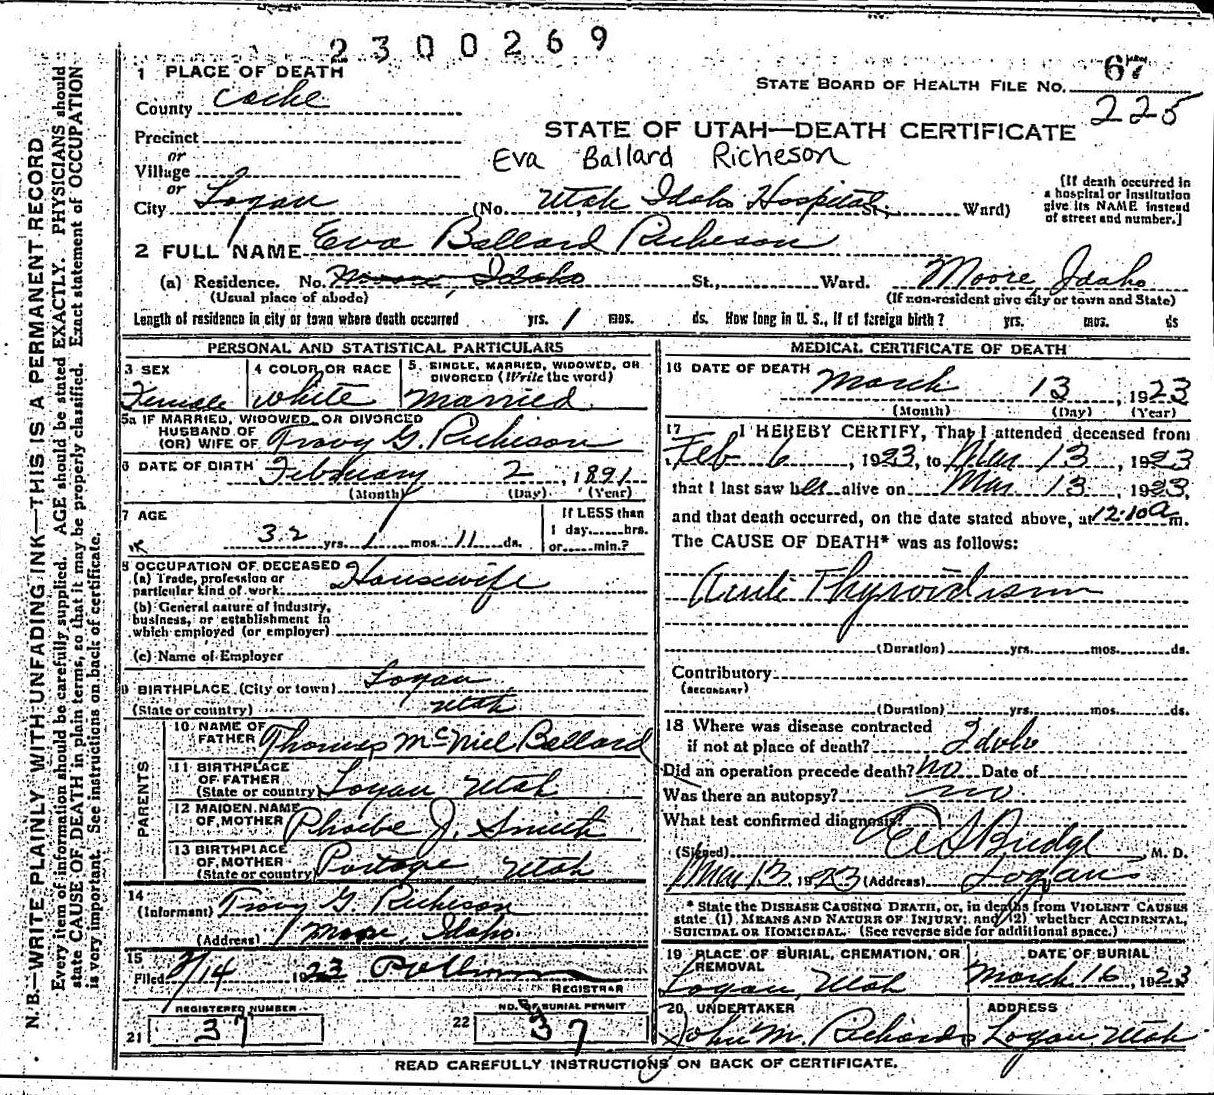 2300269
1 PLACE OF DEATH
STATE BOARD OF HEALTH FILE NO. 67
County Cache
225
STATE OF UTAH—DEATH CERTIFICATE
Precinct
or
Village
Eva Ballard Richeson
or
City Logan (No. Utah Idaho Hospital St.; Ward)
[If death occurred in
a hospital or institution
give its NAME instead
of street and number.]
2 FULL NAME Eva Ballard Richeson
(a) Residence. No. Moore, Idaho St., Ward. Moore, Idaho
(Usual place of abode) (If non-resident give city or town and State)
Length of residence in city or town where death occurred yrs. 1 mos. ds. How long in U. S., if of foreign birth? yrs. mos. ds
PERSONAL AND STATISTICAL PARTICULARS
3 SEX
Female
4 COLOR OR RACE
white
5. SINGLE, MARRIED, WIDOWED, OR
DIVORCED (Write the word)
Married
5a IF MARRIED, WIDOWED, OR DIVORCED
HUSBAND OF
(OR) WIFE OF Travy G. Richeson
6 DATE OF BIRTH February 2, 1891
(Month) (Day) (Year)
7 AGE
32 yrs. 1 mos. 11 ds.
If LESS than
1 day hrs.
or min.?
8 OCCUPATION OF DECEASED
(a) Trade, profession or
particular kind of work. Housewife
(b) General nature of industry,
business, or establishment in
which employed (or employer)
(c) Name of Employer
9 BIRTHPLACE (City or town) Logan
(State or country) Utah
PARENTS
10 NAME OF
FATHER Thomas McNiel Ballard
11 BIRTHPLACE
OF FATHER
(State or country) Logan, Utah
12 MAIDEN NAME
OF MOTHER Phoebe J. Smith
13 BIRTHPLACE
OF MOTHER
(State or country) Portage, Utah
14
(Informant) Travy G. Richeson
(Address) Moore, Idaho.
15
Filed 3/14 1923
REGISTRAR
REGISTERED NUMBER
21 37
NO. OF BURIAL PERMIT
22 37
MEDICAL CERTIFICATE OF DEATH
16 DATE OF DEATH March 13, 1923
(Month) (Day) (Year)
17 I HEREBY CERTIFY, That I attended deceased from
Feb 6, 1923, to Mar 13, 1923
that I last saw her alive on Mar 13, 1923,
and that death occurred, on the date stated above, at 12:10 a m.
The CAUSE OF DEATH* was as follows:
Thyroidism
(Duration) yrs. mos. ds.
Contributory
(SECONDARY)
(Duration) yrs. mos. ds.
18 Where was disease contracted
if not at place of death? Idaho
Did an operation precede death? no Date of
Was there an autopsy? no
What test confirmed diagnosis?
(Signed) Budge M. D.
Mar 13 1923 (Address) Logan
* State the DISEASE CAUSING DEATH, or, in deaths from VIOLENT CAUSES
state (1) MEANS AND NATURE OF INJURY; and (2) whether ACCIDENTAL,
SUICIDAL OR HOMICIDAL. (See reverse side for additional space.)
19 PLACE OF BURIAL, CREMATION, OR
REMOVAL
Logan, Utah
DATE OF BURIAL
March 16, 1923
20 UNDERTAKER
John M. Richards
ADDRESS
Logan, Utah
READ CAREFULLY INSTRUCTIONS ON BACK OF CERTIFICATE.
N.B.—WRITE PLAINLY WITH UNFADING INK—THIS IS A PERMANENT RECORD
Every item of information should be carefully supplied. AGE should be stated EXACTLY. PHYSICIANS should
state CAUSE OF DEATH in plain terms, so that it may be properly classified. Exact statement of OCCUPATION
is very important. See instructions on back of certificate.